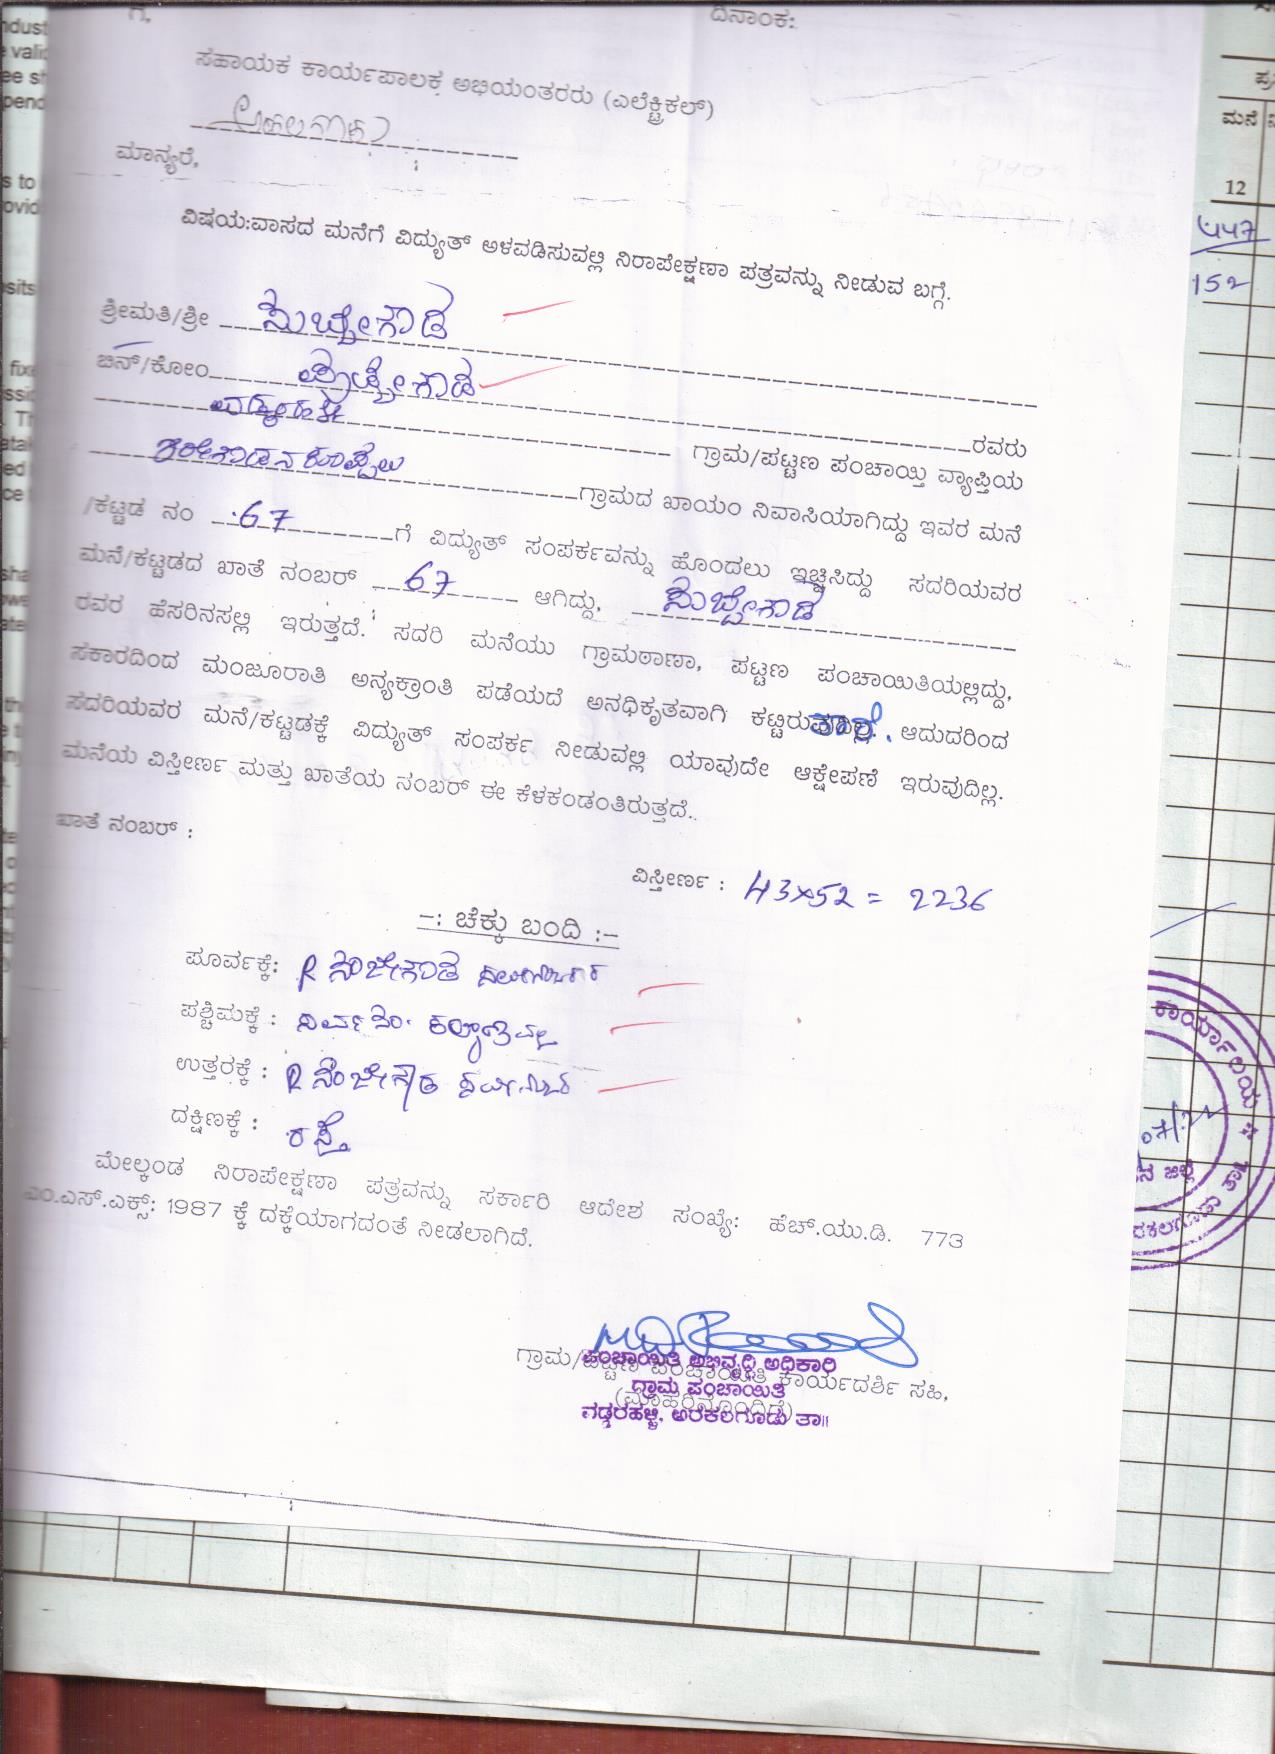 ಗೆ,
ದಿನಾಂಕ:
ಸಹಾಯಕ ಕಾರ್ಯಪಾಲಕ ಅಭಿಯಂತರರು (ಎಲೆಕ್ಟ್ರಿಕಲ್)
ಮಾನ್ಯರೆ,
ವಿಷಯ:ವಾಸದ ಮನೆಗೆ ವಿದ್ಯುತ್ ಅಳವಡಿಸುವಲ್ಲಿ ನಿರಾಪೇಕ್ಷಣಾ ಪತ್ರವನ್ನು ನೀಡುವ ಬಗ್ಗೆ.
ಶ್ರೀಮತಿ/ಶ್ರೀ ಸುಬ್ಬೇಗೌಡ
ಬಿನ್/ಕೋಂ ಪುಟ್ಟೇಗೌಡ ರವರು
ವಡ್ಡರಹಳ್ಳಿ ಗ್ರಾಮ/ಪಟ್ಟಣ ಪಂಚಾಯ್ತಿ ವ್ಯಾಪ್ತಿಯ
ಗ್ರಾಮದ ಖಾಯಂ ನಿವಾಸಿಯಾಗಿದ್ದು ಇವರ ಮನೆ
/ಕಟ್ಟಡ ನಂ 67 ಗೆ ವಿದ್ಯುತ್ ಸಂಪರ್ಕವನ್ನು ಹೊಂದಲು ಇಚ್ಚಿಸಿದ್ದು ಸದರಿಯವರ
ಮನೆ/ಕಟ್ಟಡದ ಖಾತೆ ನಂಬರ್ 67 ಆಗಿದ್ದು, ಸುಬ್ಬೇಗೌಡ
ರವರ ಹೆಸರಿನಸಲ್ಲಿ ಇರುತ್ತದೆ. ಸದರಿ ಮನೆಯು ಗ್ರಾಮಠಾಣಾ, ಪಟ್ಟಣ ಪಂಚಾಯಿತಿಯಲ್ಲಿದ್ದು,
ಸಕಾರದಿಂದ ಮಂಜೂರಾತಿ ಅನ್ಯಕ್ರಾಂತಿ ಪಡೆಯದೆ ಅನಧಿಕೃತವಾಗಿ ಕಟ್ಟಿರುತ್ತಾರೆ. ಆದುದರಿಂದ
ಸದರಿಯವರ ಮನೆ/ಕಟ್ಟಡಕ್ಕೆ ವಿದ್ಯುತ್ ಸಂಪರ್ಕ ನೀಡುವಲ್ಲಿ ಯಾವುದೇ ಆಕ್ಷೇಪಣೆ ಇರುವುದಿಲ್ಲ.
ಮನೆಯ ವಿಸ್ತೀರ್ಣ ಮತ್ತು ಖಾತೆಯ ನಂಬರ್ ಈ ಕೆಳಕಂಡಂತಿರುತ್ತದೆ.
ಖಾತೆ ನಂಬರ್ :
ವಿಸ್ತೀರ್ಣ : 43x52 = 2236
-: ಚೆಕ್ಕು ಬಂದಿ :-
ಪೂರ್ವಕ್ಕೆ:
ಪಶ್ಚಿಮಕ್ಕೆ :
ಉತ್ತರಕ್ಕೆ :
ದಕ್ಷಿಣಕ್ಕೆ : ರಸ್ತೆ
ಮೇಲ್ಕಂಡ ನಿರಾಪೇಕ್ಷಣಾ ಪತ್ರವನ್ನು ಸರ್ಕಾರಿ ಆದೇಶ ಸಂಖ್ಯೆ: ಹೆಚ್.ಯು.ಡಿ. 773
ಎಂ.ಎಸ್.ಎಕ್ಸ್: 1987 ಕ್ಕೆ ದಕ್ಕೆಯಾಗದಂತೆ ನೀಡಲಾಗಿದೆ.
ಗ್ರಾಮ/ಪಟ್ಟಣ ಪಂಚಾಯಿತಿ ಕಾರ್ಯದರ್ಶಿ ಸಹಿ,
(ಮೊಹರಿನೊಂದಿಗೆ)
ಪಂಚಾಯಿತಿ ಅಭಿವೃದ್ಧಿ ಅಧಿಕಾರಿ
ಗ್ರಾಮ ಪಂಚಾಯಿತಿ
ವಡ್ಡರಹಳ್ಳಿ, ಅರಕಲಗೂಡು ತಾ||
ಮನೆ
12
447
152
ಕಾರ್ಯಾಲಯ